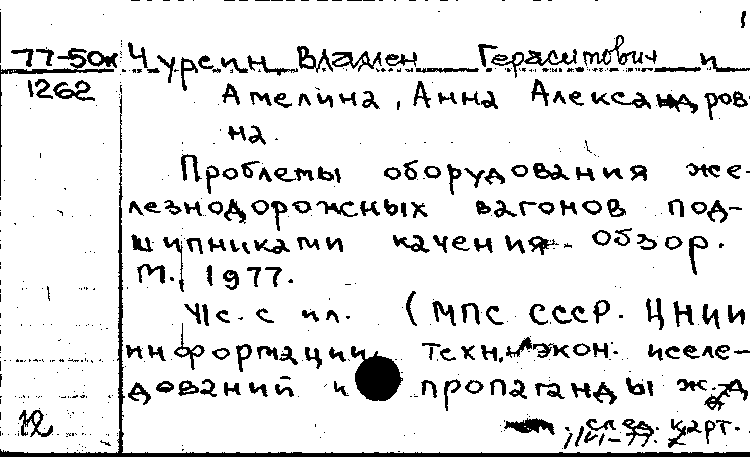 77-50к Чурсин Владлен Герасимович и
1262 Амелина, Анна Александров-
на.
Проблемы оборудования же-
лезнодорожных вагонов под-
шипниками качения. Обзор.
М., 1977.
41с. с ил. (МПС СССР. ЦНИИ
информации, техн.-экон. исследо-
дований и пропаганды ж.-д
12 см. след. карт.